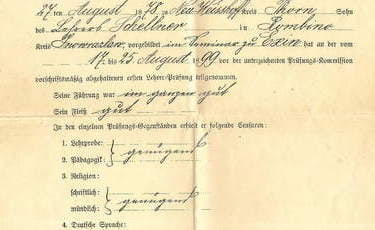 27 ten August 1878 Neu Weißhof Kreis Thorn Sohn
des Lehrers Schellner in Rombino
Kreis Inowrazlaw, vorgebildet im Seminar zu Exin hat an der vom
17. bis 25. August 1899 vor der unterzeichneten Prüfungs-Kommission
vorschriftsmäßig abgehaltenen ersten Lehrer-Prüfung teilgenommen.
Seine Führung war im ganzen gut
Sein Fleiß gut
In den einzelnen Prüfungs-Gegenständen erhielt er folgende Censuren:
1. Lehrprobe:
genügend
2. Pädagogik:
3. Religion:
schriftlich:
genügend
mündlich:
4. Deutsche Sprache: